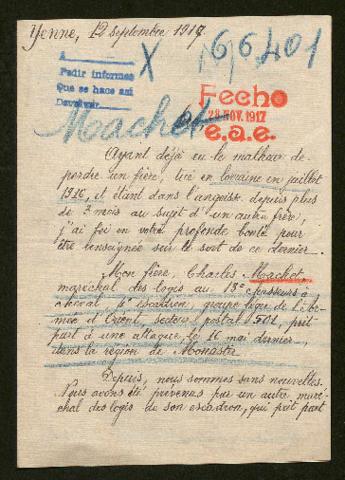 Yenne, 12 Septembre 1917
66401
A
Pedir informes
Que se hace asi
X
Fecho
28 NOV. 1917
e.a.e.
Machet
Ayant déjà eu le malheur de
perdre un frère, tué en Lorraine en juillet
et étant dans l'angoisse depuis plus
de 3 mois au sujet d'un autre frère,
j'ai foi en votre profonde bonté pour
être renseignée sur le sort de ce dernier.
Mon frère, Charles Machet,
maréchal des logis au chasseurs à
cheval, escadron, groupe léger de l'Ar-
mée d'Orient, secteur postal 501, prit
part à une attaque le 16 mai dernier,
dans la région de Monastir.
Depuis, nous sommes sans nouvelles.
Nous avons été prévenus par un autre maré-
chal des logis de son escadron, qui prit part